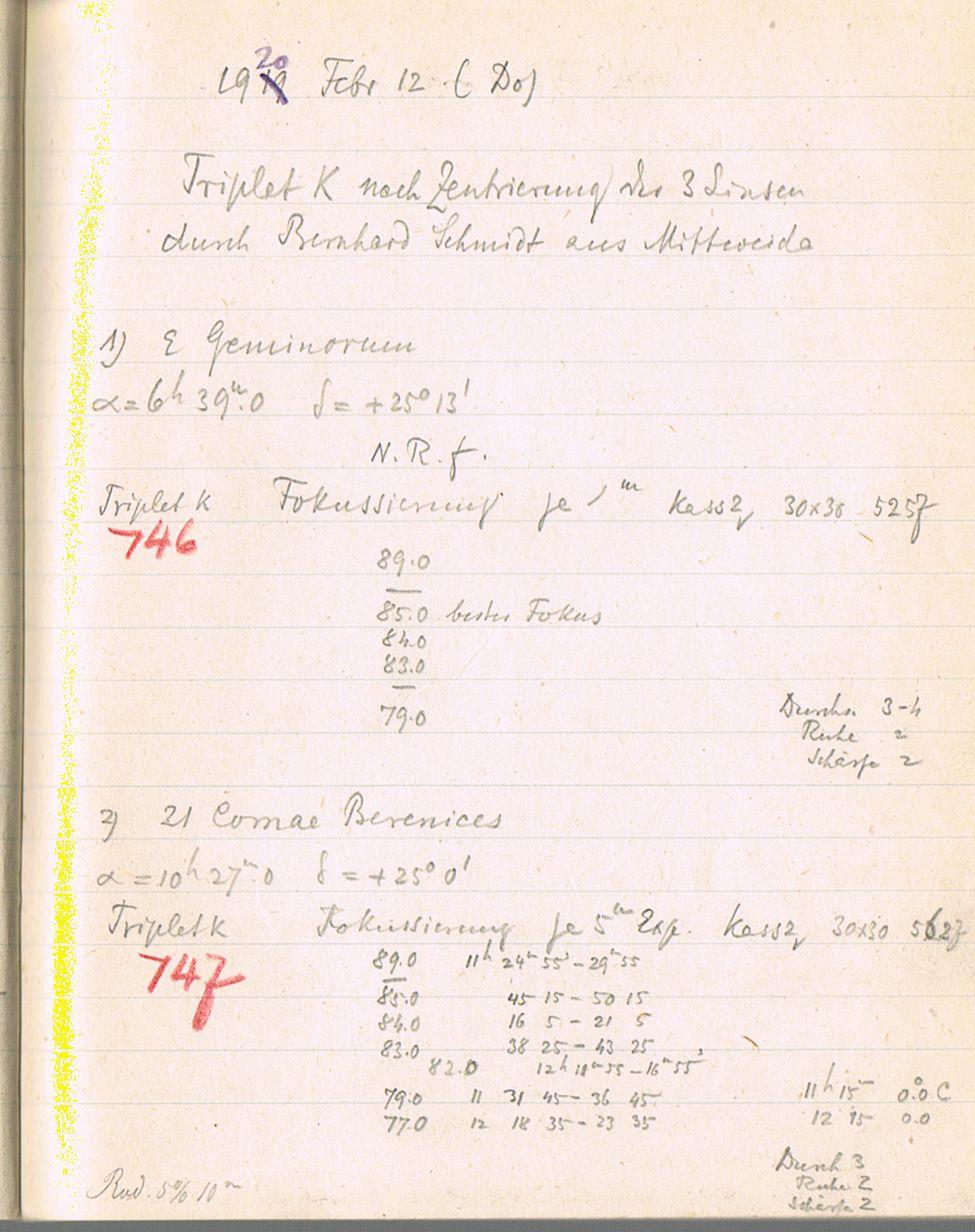 1920 Febr 12 (Do)
Triplet K nach Zentrierung der 3 Linsen
durch Bernhard Schmidt aus Mittweida
1) ε Geminorum
α = 6h 39m.0 δ = +25° 13'
N. R. f.
Triplet K Fokussierung je 1m Kass 2, 30x30 5257
746
89.0
85.0 bester Fokus
84.0
83.0
79.0
Durchs. 3-4
Ruhe 2
Schärfe 2
2) 21 Comae Berenices
α = 10h 27m.0 δ = +25° 0'
Triplet K Fokussierung je 5m Exp. Kass 2, 30x30 5627
747
89.0 11h 24m 55s - 29m 55
85.0 45 15 - 50 15
84.0 16 5 - 21 5
83.0 38 25 - 43 25
82.0 12h 11m 55 - 16m 55s
79.0 11 31 45 - 36 45
77.0 12 18 35 - 23 35
11h 15m 0.0°C
12 15 0.0
Durch 3
Ruhe 2
Schärfe 2
Rod. 5% 10m